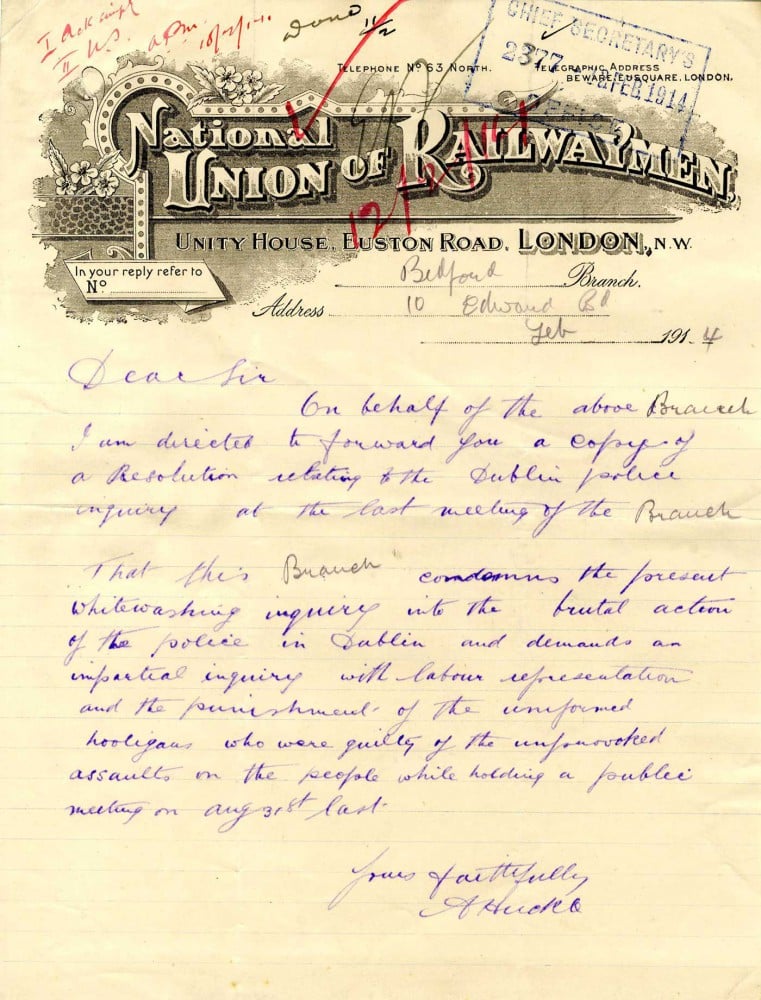 I Ack
II U.S.
Done 11/2
CHIEF SECRETARY'S
2377
FEB. 1914
TELEPHONE Nº 63 NORTH.
TELEGRAPHIC ADDRESS
BEWARE, EUSQUARE, LONDON.
NATIONAL
UNION OF RAILWAYMEN,
12/2/14
UNITY HOUSE, EUSTON ROAD, LONDON, N.W.
In your reply refer to
Nº
Bedford Branch.
Address 10 Edward Rd
Feb 1914
Dear Sir
On behalf of the above Branch
I am directed to forward you a copy of
a Resolution relating to the Dublin police
inquiry at the last meeting of the Branch
That this Branch condemns the present
whitewashing inquiry into the brutal action
of the police in Dublin and demands an
impartial inquiry with labour representation
and the punishment of the uniformed
hooligans who were guilty of the unprovoked
assaults on the people while holding a public
meeting on Aug 31st last
Yours faithfully